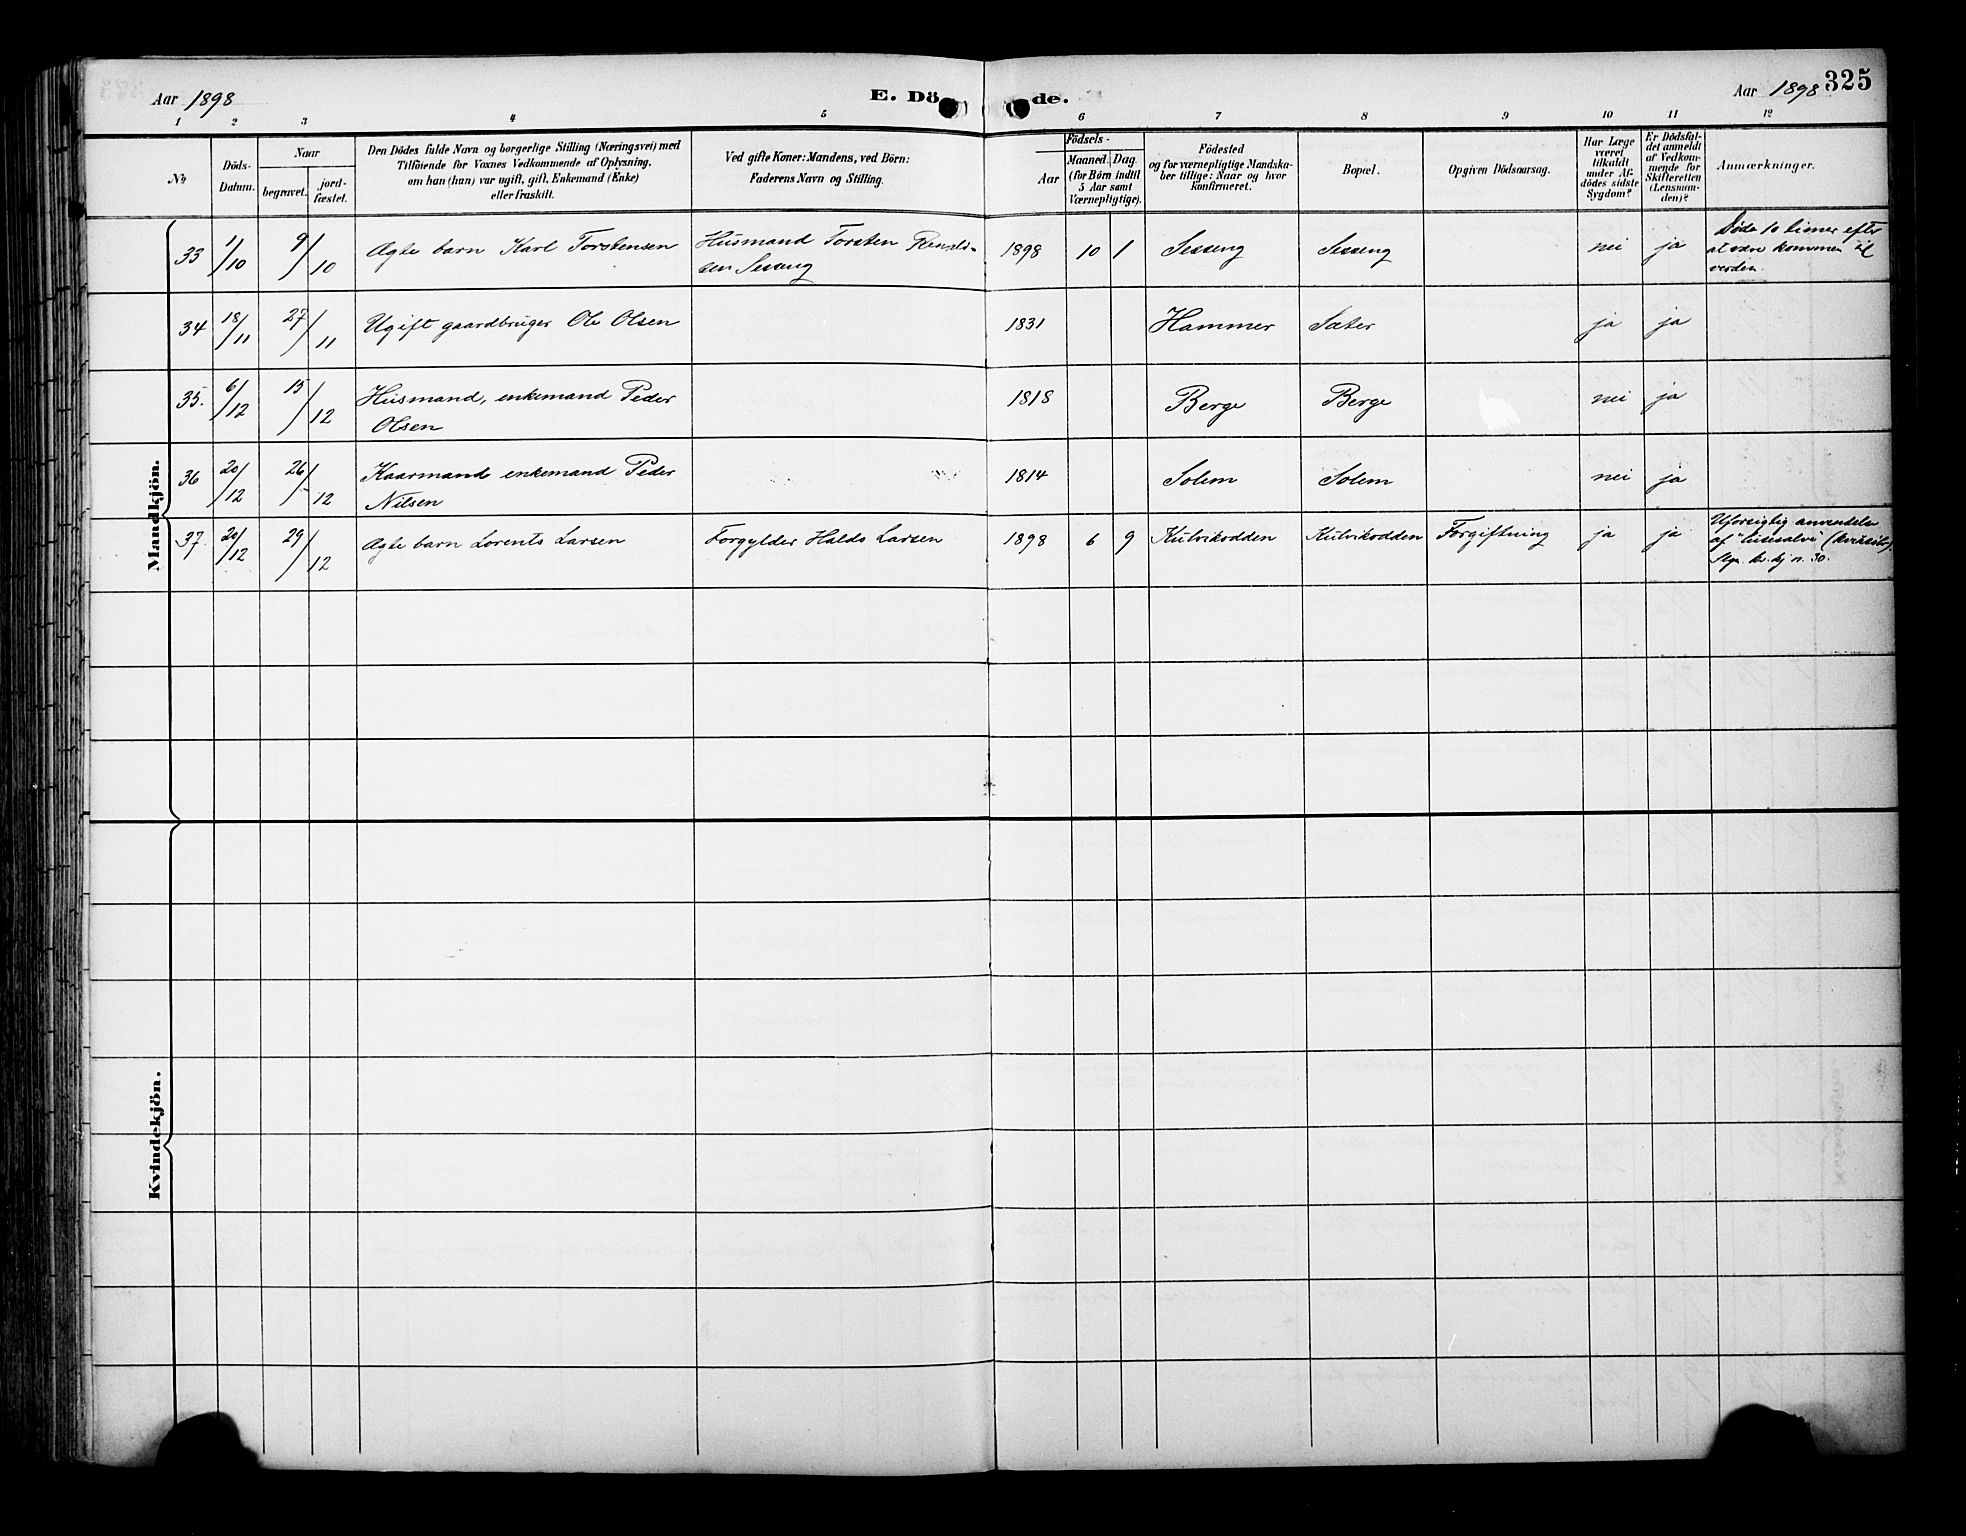 Aar 1898
E. Dö de.
Aar 1898
325
1 2 3 4 5 6 7 8 9 10 11 12
No
Döds-
Datum.
Naar
begravet.
jord-
fæstet.
Den Dödes fulde Navn og borgerlige Stilling (Næringsvei) med
Tilföiende for Voxnes Vedkommende af Oplysning,
om han (hun) var ugift, gift, Enkemand (Enke)
eller fraskilt.
Ved gifte Koner: Mandens, ved Börn:
Faderens Navn og Stilling.
Födsels-
Aar
Maaned. Dag.
(for Börn indtil
5 Aar samt
Værnepligtige).
Födested
og for værnepligtige Mandska-
ber tillige: Naar og hvor
konfirmeret.
Bopæl.
Opgiven Dödsaarsag.
Har Læge
været
tilkaldt
under Af-
dödes sidste
Sygdom?
Er Dödsfal-
det anmeldt
af Vedkom-
mende for
Skifteretten
(Lensman-
den)?
Anmærkninger.
Mandkjön.
33 1/10 9/10 Ægte barn Karl Torstensen Husmand Torsten
sen Sesseng 1898 10 1 Sesseng Sesseng nei ja Döde 10 timer efter
at være kommen til
verden.
34 18/11 27/11 Ugift gaardbruger Ole Olsen 1831 Hammer Sæter ja ja
35. 6/12 15/12 Husmand, enkemand Peder
Olsen 1818 Berge Berge nei ja
36 20/12 26/12 Kaarmand enkemand Peder
Nilsen 1814 Solem Solem nei ja
37. 20/12 29/12 Ægte barn Lorents Larsen Forgylder Halds Larsen 1898 6 9 Kulvikodden Kulvikodden Forgiftning ja ja Uforsigtig anvendelse
af "lusesalve" (kviksölv).
n. 30.
Kvindekjön.